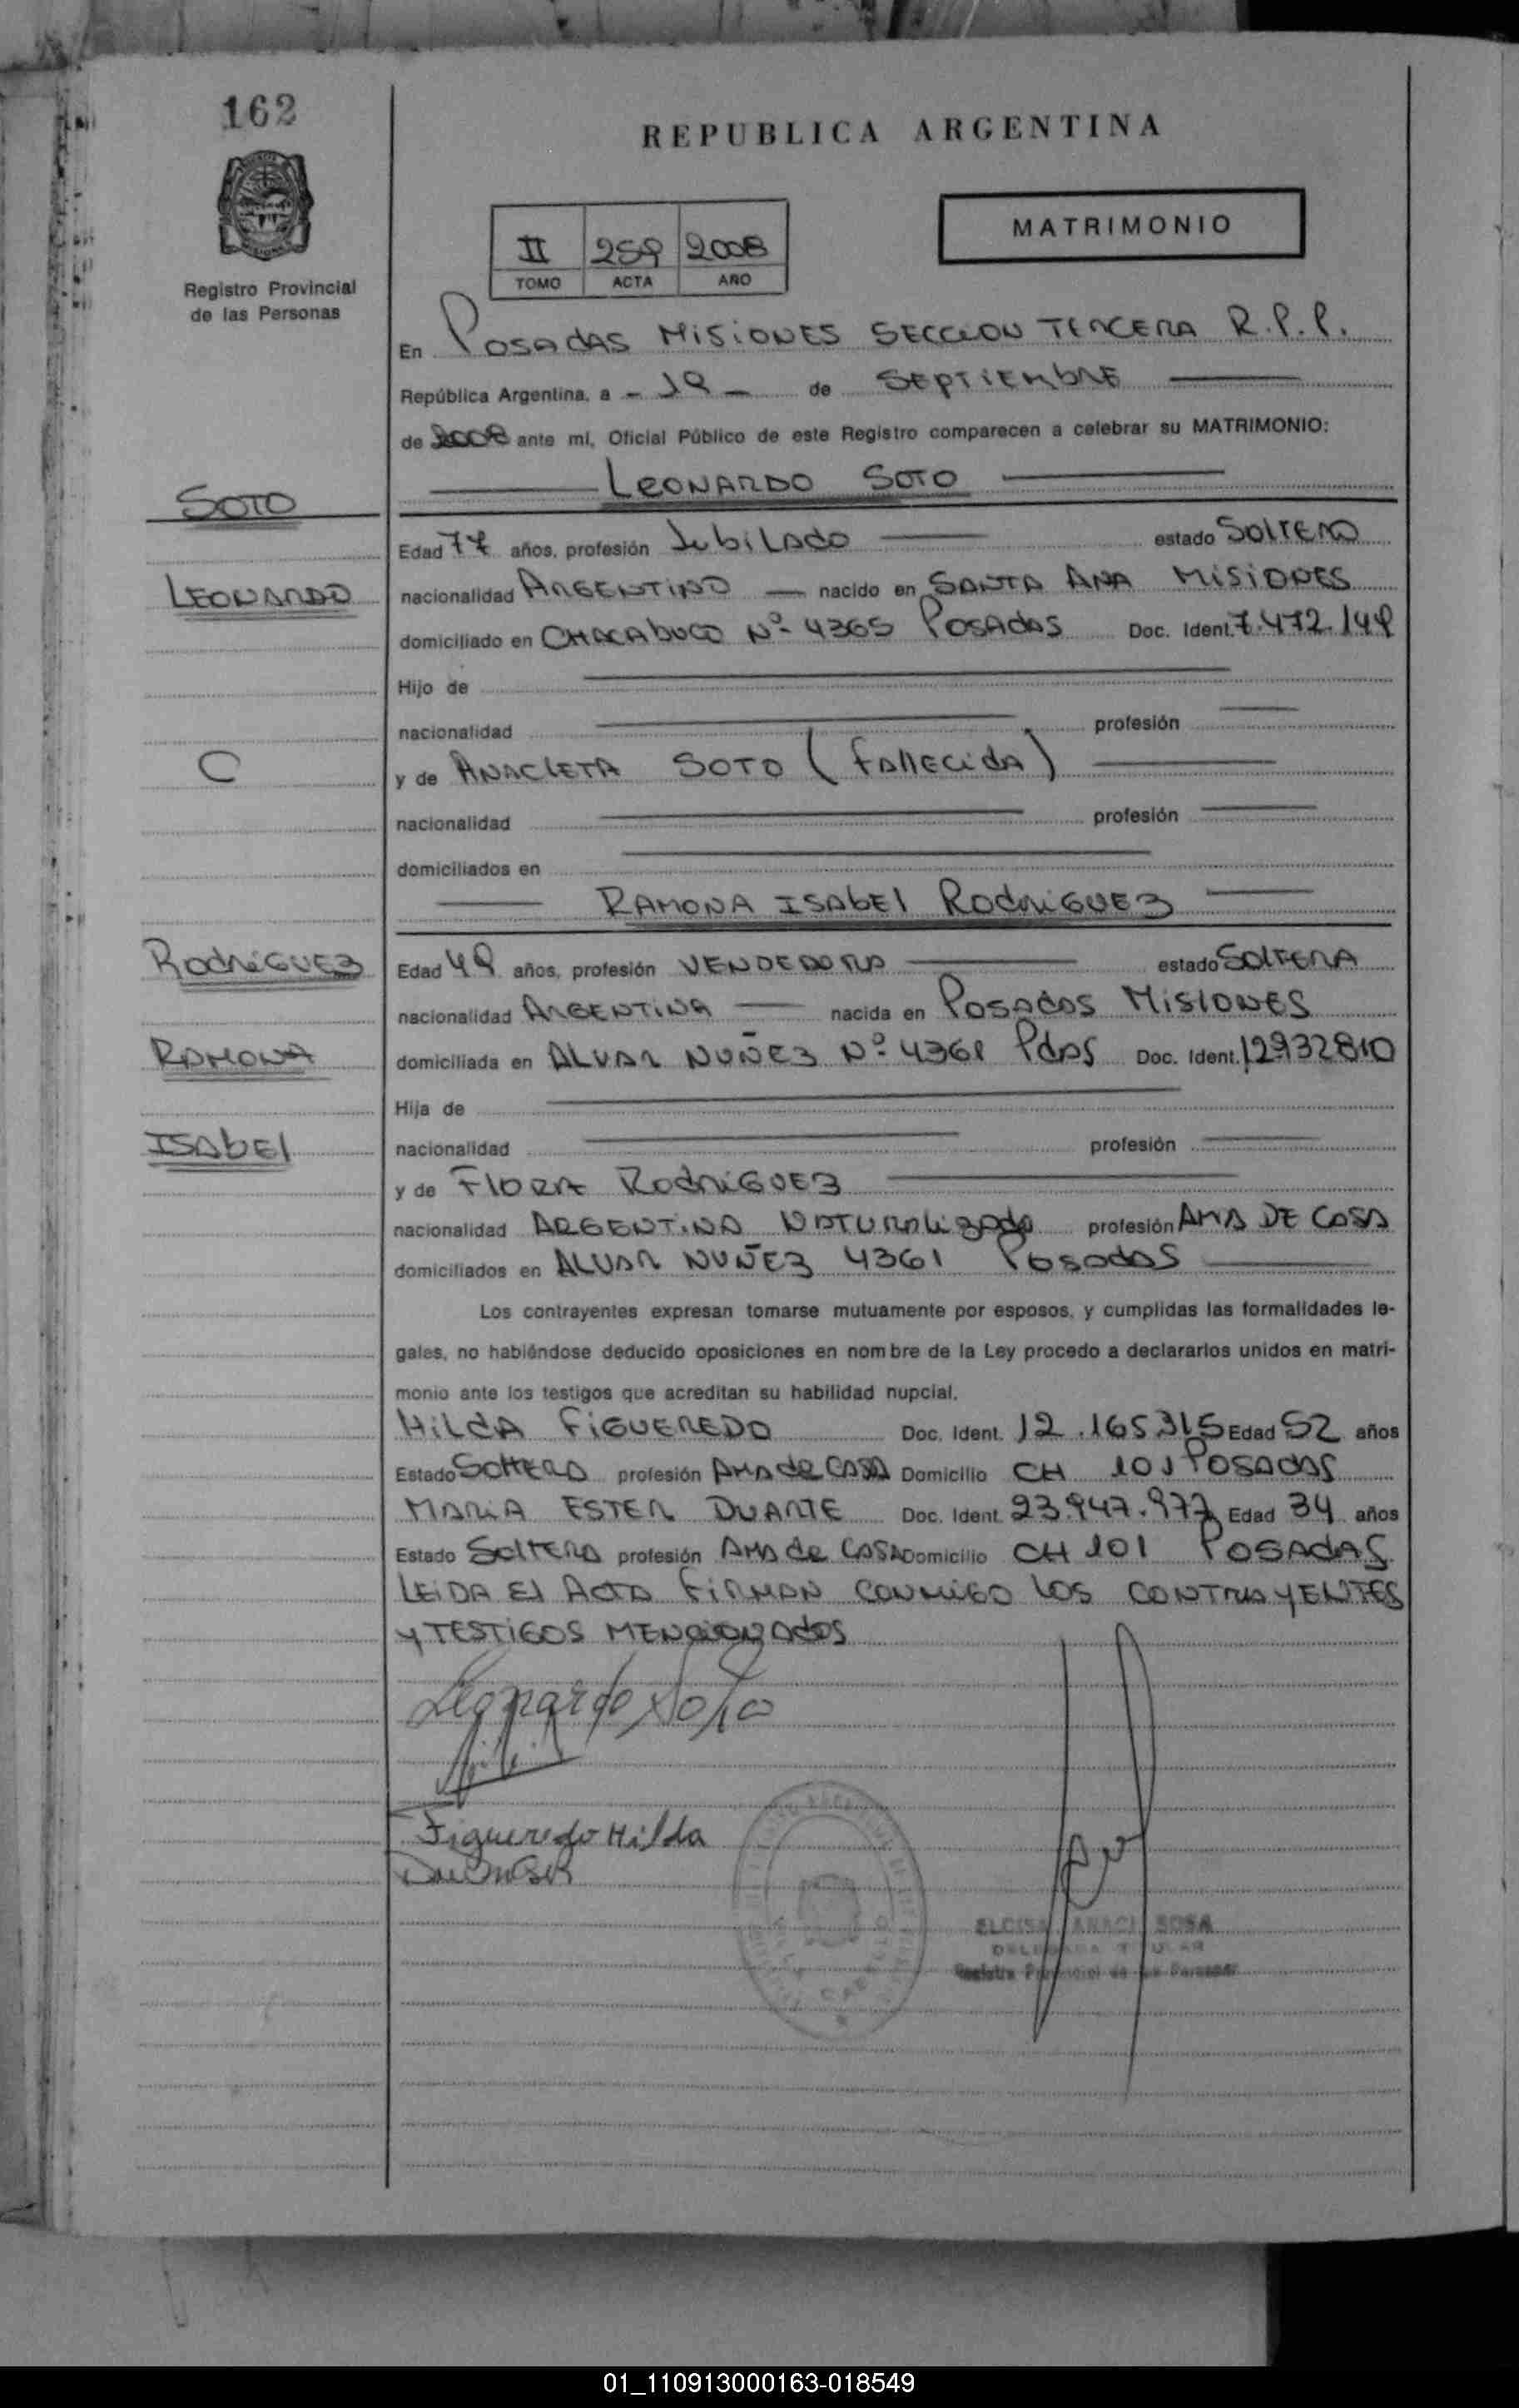 162
REPUBLICA ARGENTINA
Registro Provincial
de las Personas
II 259 2008
TOMO ACTA AÑO
MATRIMONIO
En POSADAS MISIONES SECCION TERCERA R.P.P.
República Argentina, a - 19 - de SEPTIEMBRE
de 2008 ante mí, Oficial Público de este Registro comparecen a celebrar su MATRIMONIO:
LEONARDO SOTO
SOTO
Edad 77 años, profesión JubiLADO estado SOLTERO
LEONARDO
nacionalidad ARGENTINO nacido en SANTA ANA MISIONES
domiciliado en CHACABUCO Nº 4365 POSADAS Doc. Ident. 7.472.149
Hijo de
nacionalidad profesión
C
y de ANACLETA SOTO (FALLECIDA)
nacionalidad profesión
domiciliados en
RAMONA ISABEL RODRIGUEZ
RODRIGUEZ
Edad 49 años, profesión VENDEDORA estado SOLTERA
nacionalidad ARGENTINA nacida en POSADAS MISIONES
RAMONA
domiciliada en ALVAR NUÑEZ Nº 4361 PdAS Doc. Ident. 12932810
Hija de
ISABEL
nacionalidad profesión
y de FLORA RODRIGUEZ
nacionalidad ARGENTINA NATURALIZADA profesión AMA DE CASA
domiciliados en ALVAR NUÑEZ 4361 POSADAS
Los contrayentes expresan tomarse mutuamente por esposos, y cumplidas las formalidades le-
gales, no habiéndose deducido oposiciones en nombre de la Ley procedo a declararlos unidos en matri-
monio ante los testigos que acreditan su habilidad nupcial.
HILDA FIGUEREDO Doc. Ident. 12.165.315 Edad 52 años
Estado SOLTERA profesión AMA de CASA Domicilio CH 101 POSADAS
MARIA ESTER DUARTE Doc. Ident. 23.947.977 Edad 34 años
Estado SOLTERA profesión AMA de CASA Domicilio CH 101 POSADAS
LEIDA El ACTA FIRMAN CONMIGO LOS CONTRAYENTES
y TESTIGOS MENCIONADOS
Leonardo Soto
Figueredo Hilda
SOSA
Registro Provincial de las Personas
01_110913000163-018549